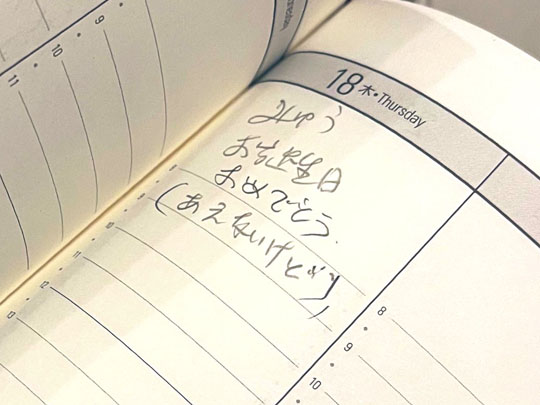 18 木・Thursday
みゅう
お誕生日
おめでとう.
(あえないけど…)
8
9
10
9
10
11
11
12
13